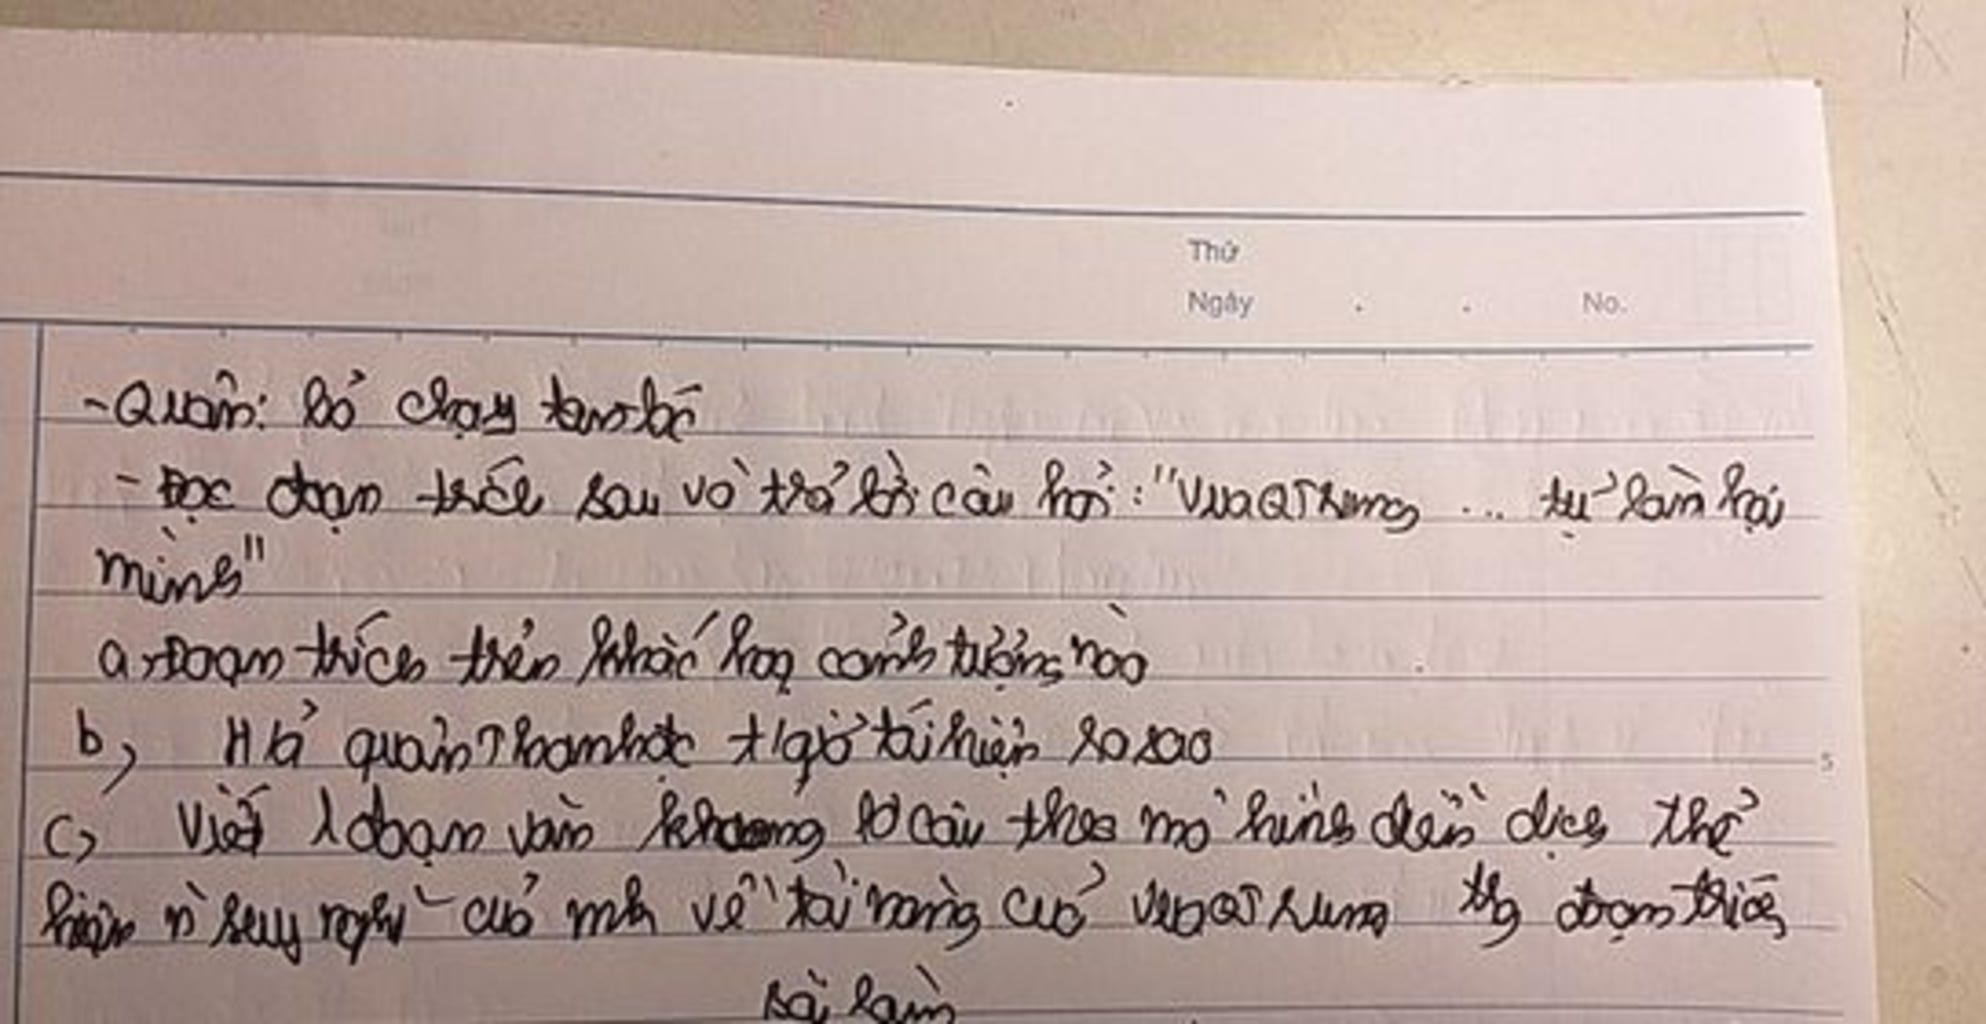 Thứ
Ngày . . No.
-Quân: bỏ chạy tán loạn
- Đọc đoạn trích sau và trả lời câu hỏi: "Vua QTrung ... tự làm hại
mình"
a, Đoạn trích trên khắc hoạ cảnh tượng nào
b, H/ả quân Thanh đc t/giả tái hiện ra sao
c, Viết 1 đoạn văn khoảng 10 câu theo mô hình diễn dịch thể
hiện n~ suy nghĩ của mh về tài năng của vua QTrung tg đoạn trích
5
Bài làm